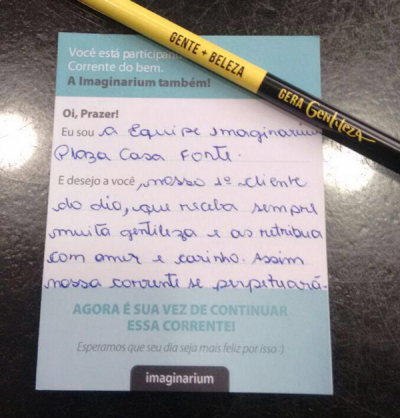 Você está participando
Corrente do bem.
A Imaginarium também!
GENTE + BELEZA
GERA Gentileza
Oi, Prazer!
Eu sou a Equipe Imaginarium
Plaza Casa Forte.
E desejo a você, nosso 1º cliente
do dia, que receba sempre
muita gentileza e as retribua
com amor e carinho. Assim
nossa corrente se perpetuará.
AGORA É SUA VEZ DE CONTINUAR
ESSA CORRENTE!
Esperamos que seu dia seja mais feliz por isso :)
imaginarium